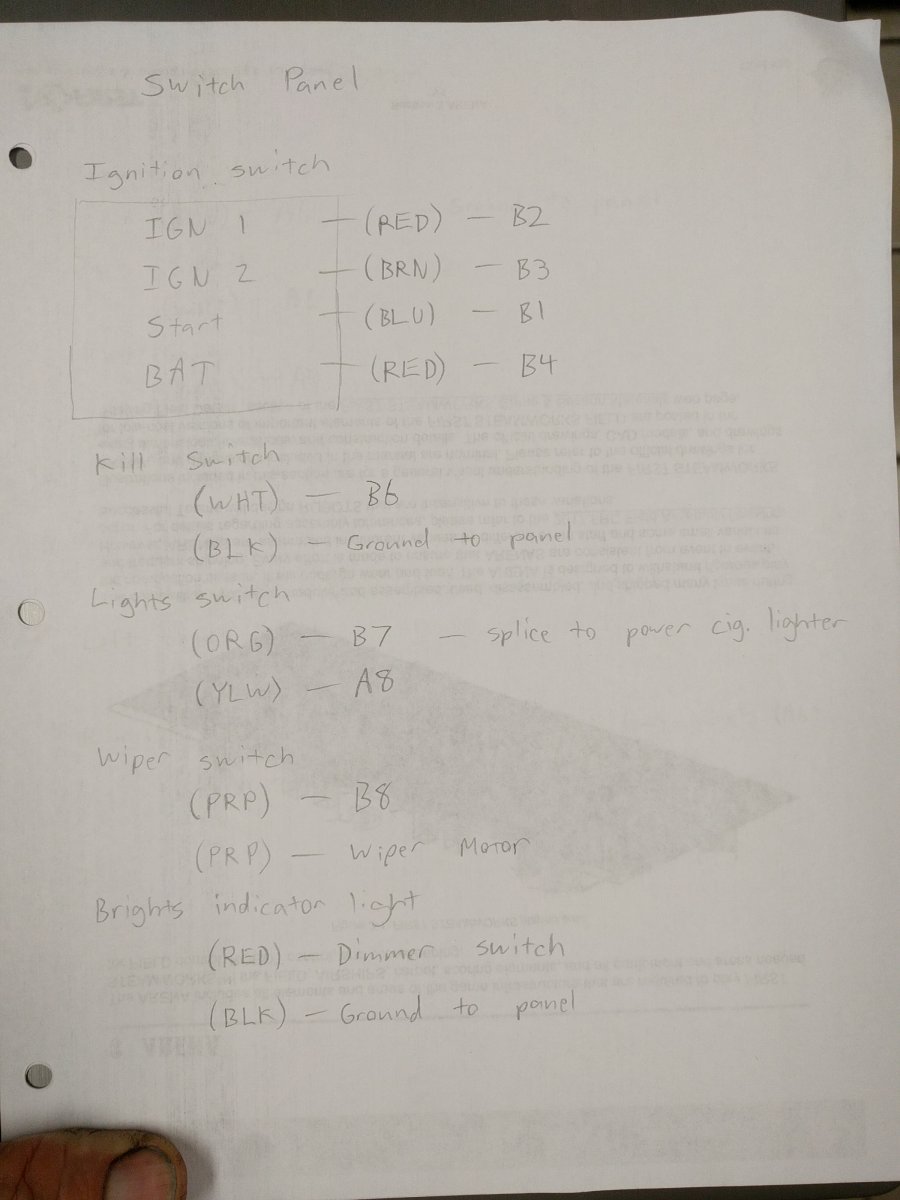 Switch Panel
Ignition switch
IGN 1 — (RED) — B2
IGN 2 — (BRN) — B3
Start — (BLU) — B1
BAT — (RED) — B4
Kill Switch
(WHT) — B6
(BLK) — Ground to panel
Lights switch
(ORG) — B7 — splice to power cig. lighter
(YLW) — A8
Wiper switch
(PRP) — B8
(PRP) — Wiper Motor
Brights indicator light
(RED) — Dimmer switch
(BLK) — Ground to panel